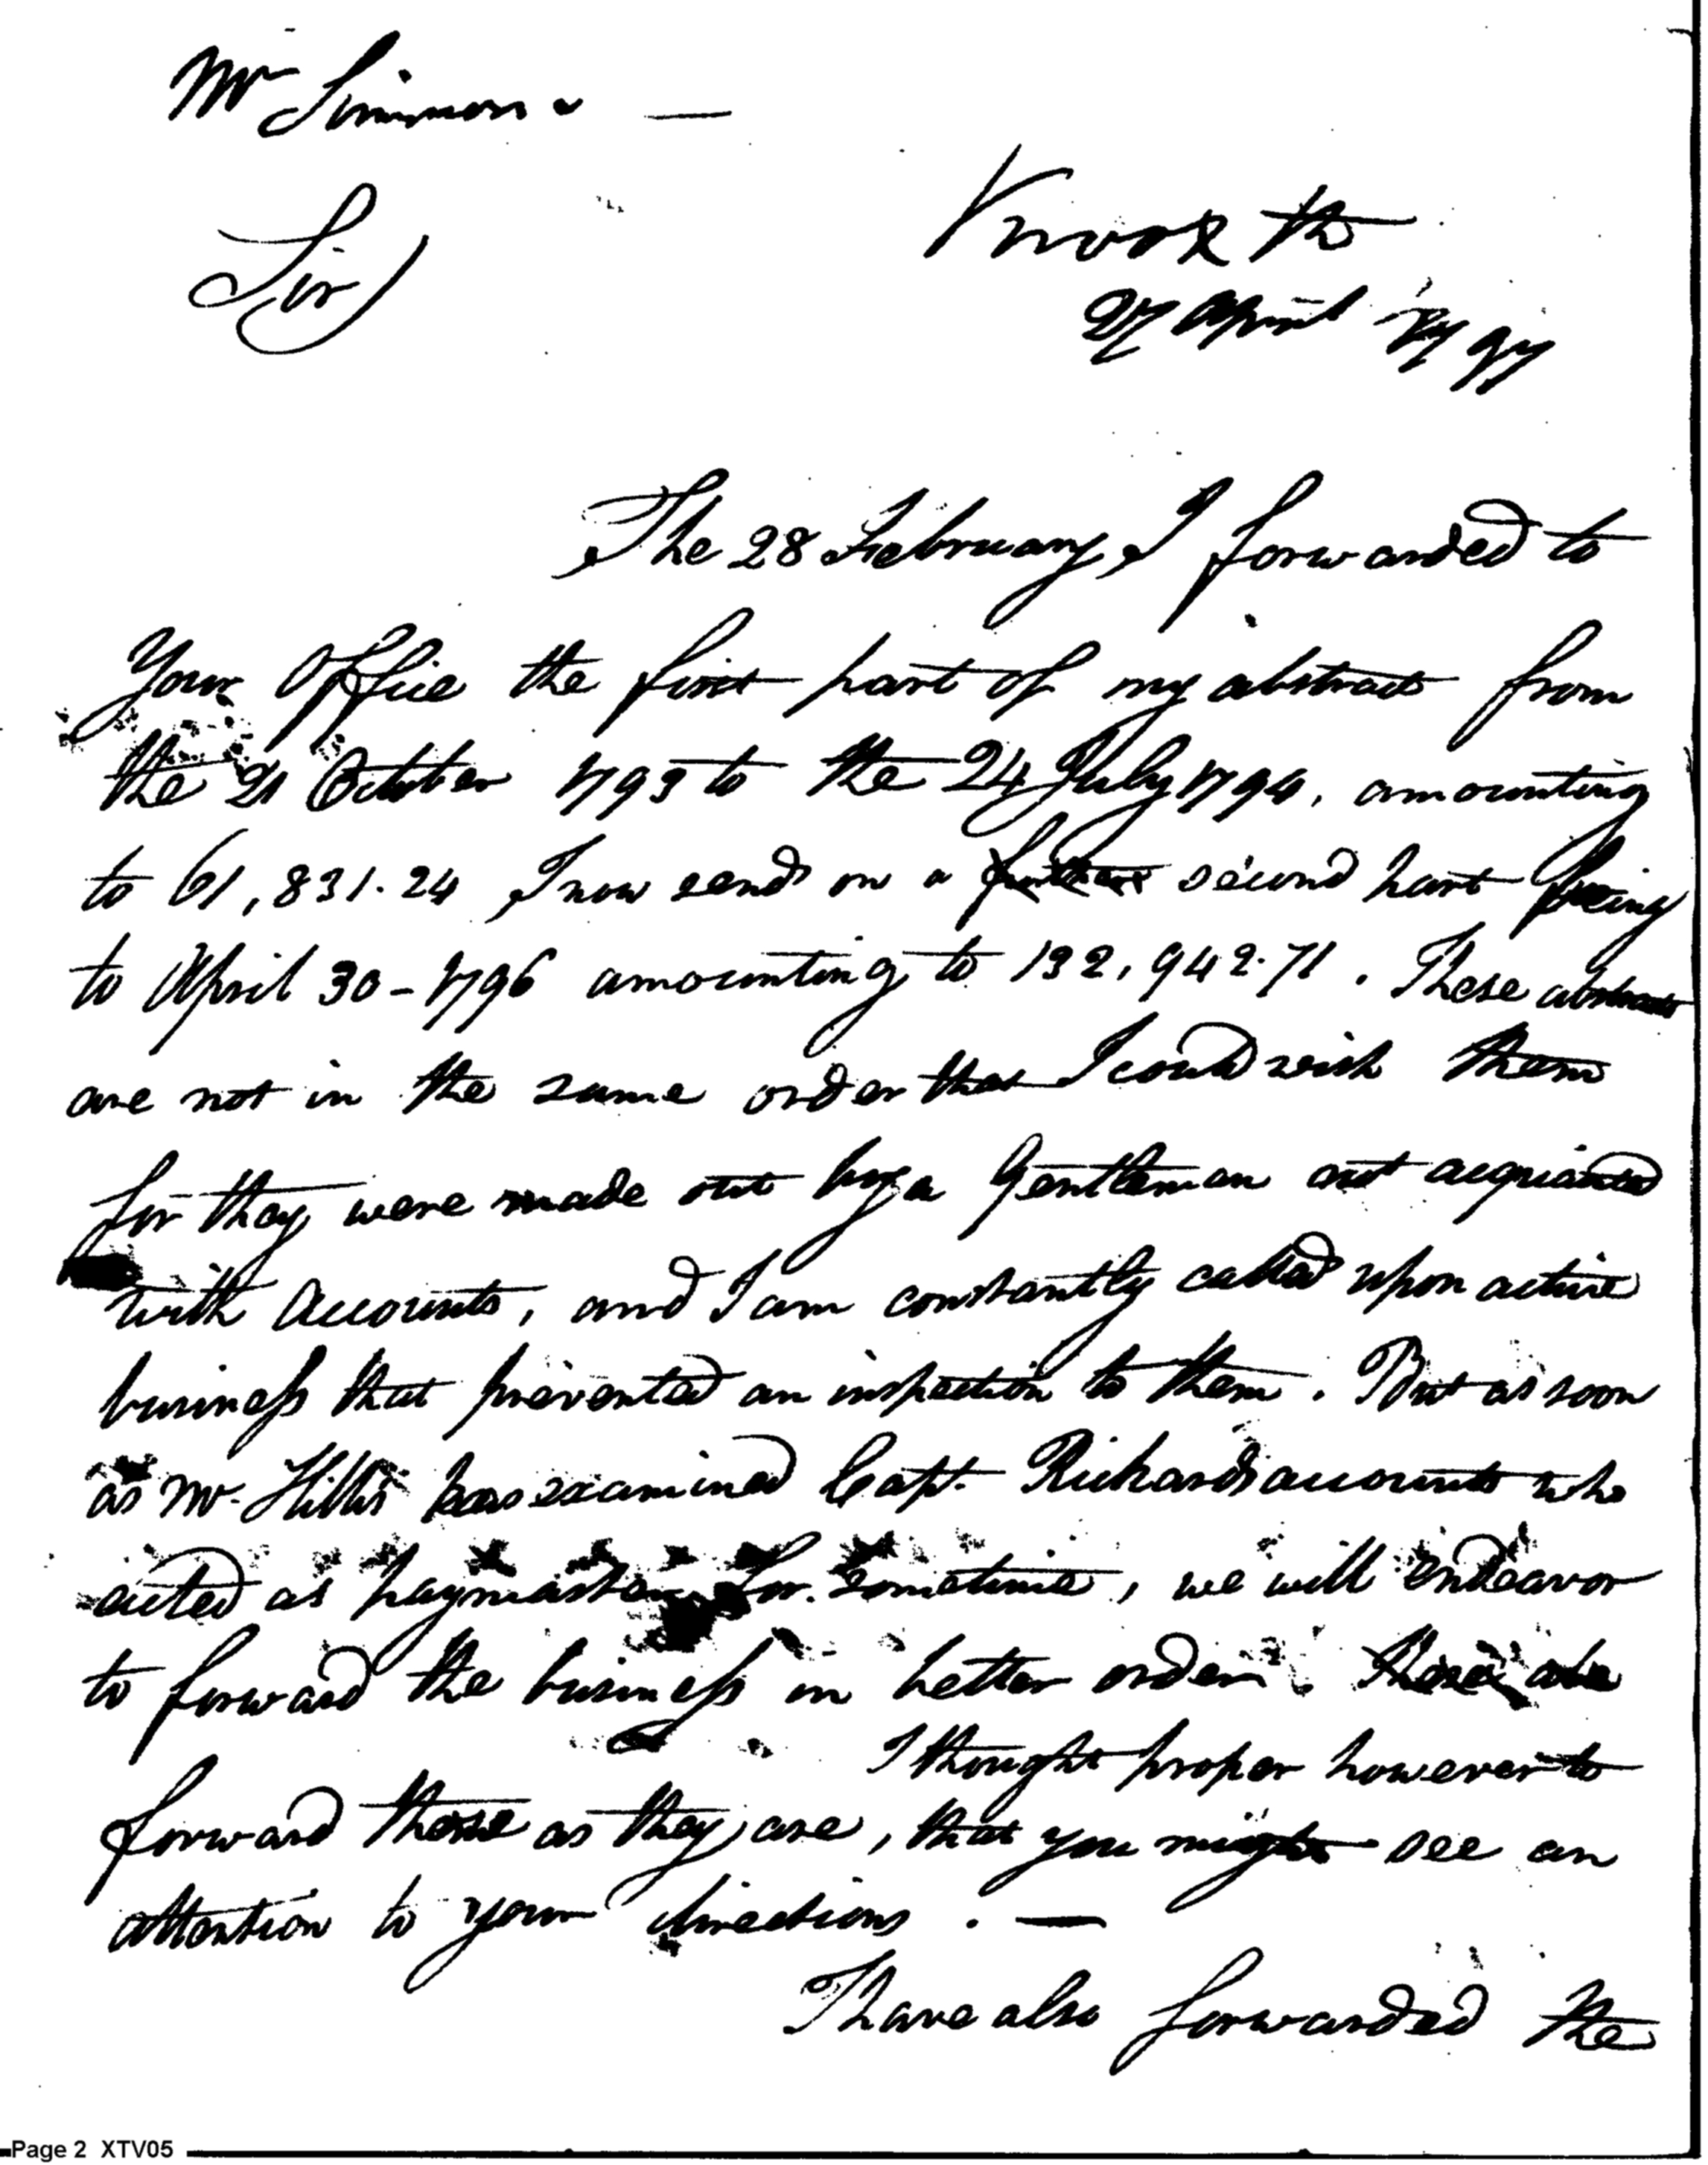 Mr Simmons —
Sir
Knox th
27 April 1797
The 28 February, I forwarded to
Your Office the first part of my abstracts from
the 21 October 1793 to the 24 July 1794, amounting
to 61,831.24 I now send on a further second part being
to April 30 - 1796 amounting to 132,942.71. These abstracts
are not in the same order that I could wish them
for they were made out by a Gentleman not acquainted
with Accounts, and I am constantly called upon active
business that prevented an inspection to them. But as soon
as Mr. Hillis has examined Capt. Richards accounts who
acted as paymaster for sometime, we will endeavor
to forward the business in better order. These are
I thought proper however to
forward these as they are, that you might see an
attention to your directions. —
I have also forwarded the
Page 2 XTV05